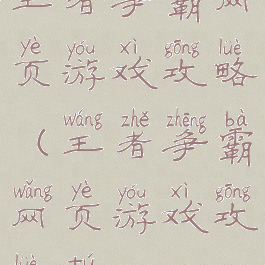 王者争霸网
yè yóu xì gōng lüè
页游戏攻略
wáng zhě zhēng bà
（王者争霸
wǎng yè yóu xì gōng
网页游戏攻
lüè